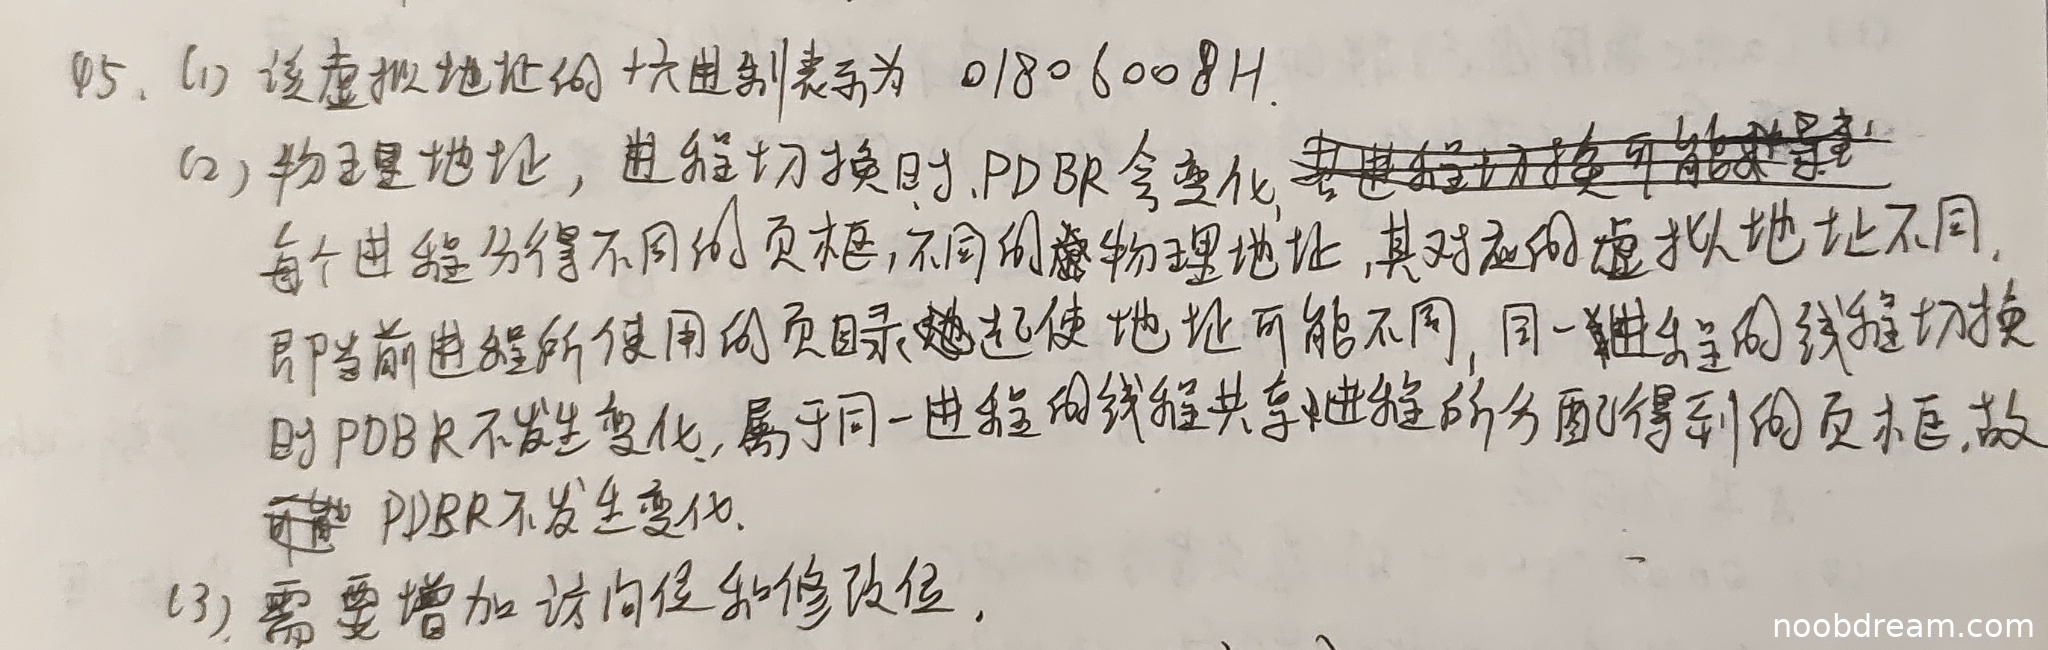 45. (1) 该虚拟地址的十六进制表示为 01806008H.
(2) 物理地址，进程切换时.PDBR会变化,
每个进程分得不同的页框,不同的物理地址,其对应的虚拟地址不同.
即当前进程所使用的页目录起使地址可能不同,同一进程的线程切换
时PDBR不发生变化,属于同一进程的线程共享进程所分配得到的页框.故
PDBR不发生变化.
(3) 需要增加访问位和修改位.
noobdream.com